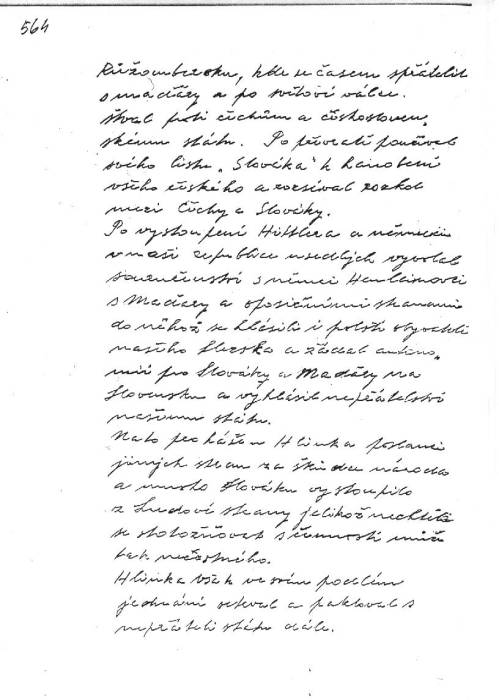 564
Růžomberoku, kde se časem spřátelil
s maďáry a po světové válce
štval proti čechům a českosloven„
skému státu. Po převratě používal
svého listu „Slováka“ k hanobení
všeho českého a rozsíval rozkol
mezi Čechy a Slováky.
Po vystoupení Hittlera a němců
v naší republice usedlých vyvolal
souručenství s němci Henleinovci
s Maďáry a oposičními stranami
do něhož se hlásili i polští obyvatelé
našeho Slezska a žádal auto„
mii pro Slováky a Maďáry na
Slovensku a vyhlásil nepřátelství
našemu státu.
Nato prohlášen Hlinka poslanci
jiných stran za škůdce národa
a mnoho Slováků vystoupilo
z Ludové strany jelikož nechtěli
se stotožňovat s činností muže
tak nečestného.
Hlinka však ve svém podlém
jednání setrval a paktoval s
nepřáteli státu dále.